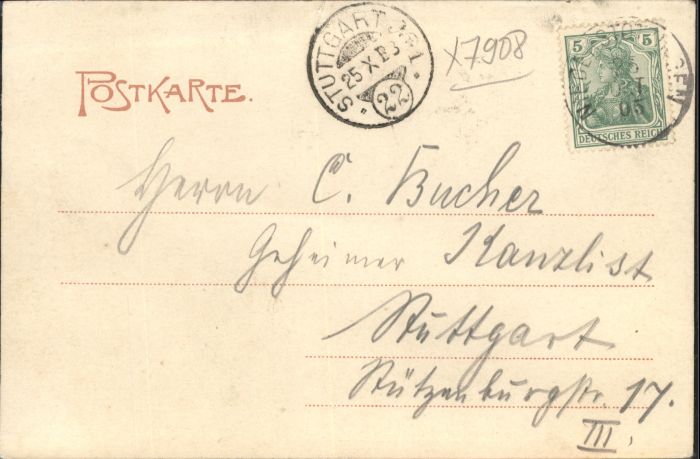 POSTKARTE.
STUTTGART
25 X
22
X7908
5 5
05
DEUTSCHES REICH
Herrn C. Bucher
Geheimer Kanzlist
Stuttgart
Stützenburgstr. 17.
III.